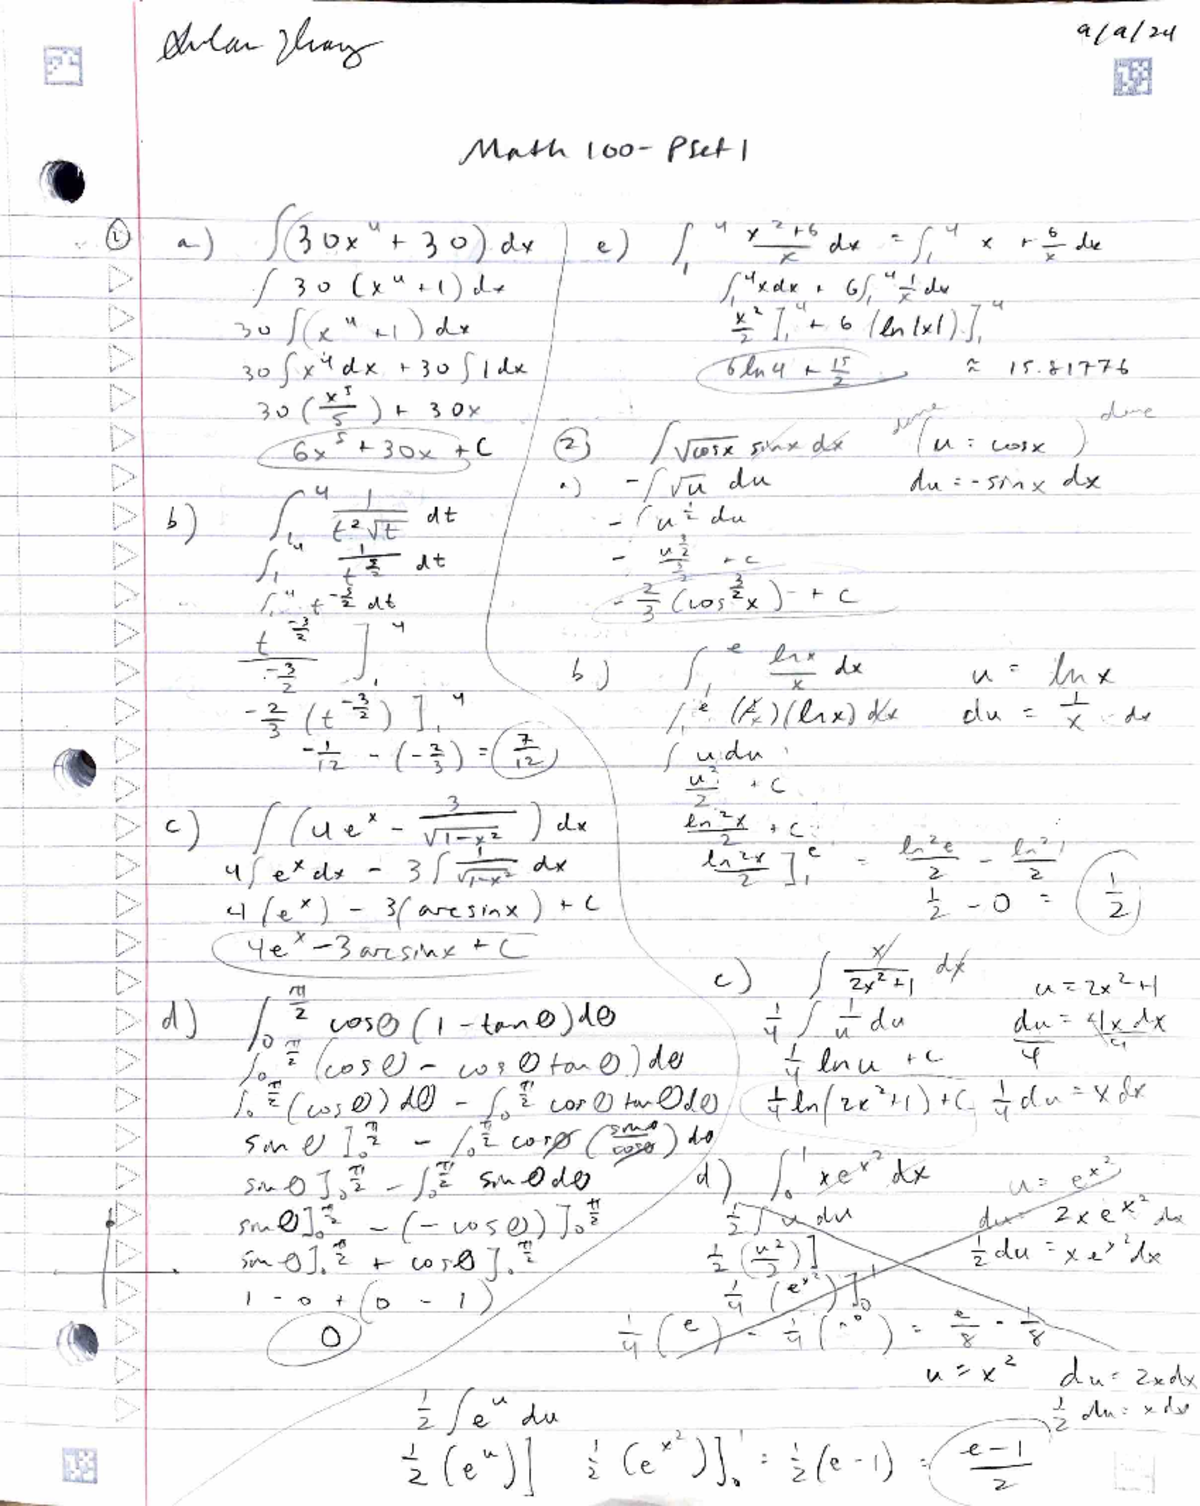 9/9/24
Math 100 - Pset 1
① a) ∫(30x⁴ + 30) dx
∫ 30 (x⁴ + 1) dx
30 ∫(x⁴ + 1) dx
30 ∫x⁴ dx + 30 ∫ 1 dx
30 (x⁵/5) + 30x
6x⁵ + 30x + C
b) ∫₁⁴ 1/(t²√t) dt
∫₁⁴ 1/t^(5/2) dt
∫₁⁴ t^(-5/2) dt
t^(-3/2)/(-3/2) ]₁⁴
-2/3 (t^(-3/2)) ]₁⁴
-1/12 - (-2/3) = 7/12
c) ∫ (4e^x - 3/√(1-x²)) dx
4∫e^x dx - 3∫ 1/√(1-x²) dx
4(e^x) - 3(arcsinx) + C
4e^x - 3arcsinx + C
d) ∫₀^(π/2) cosθ (1 - tanθ) dθ
∫₀^(π/2) (cosθ - cosθ tanθ) dθ
∫₀^(π/2) (cosθ) dθ - ∫₀^(π/2) cosθ tanθ dθ
sinθ ]₀^(π/2) - ∫₀^(π/2) cosθ (sinθ/cosθ) dθ
sinθ ]₀^(π/2) - ∫₀^(π/2) sinθ dθ
sinθ ]₀^(π/2) - (-cosθ) ]₀^(π/2)
sinθ ]₀^(π/2) + cosθ ]₀^(π/2)
1 - 0 + (0 - 1)
0
e) ∫₁⁴ (x²+6)/x dx = ∫₁⁴ x + 6/x dx
∫₁⁴ x dx + 6∫₁⁴ 1/x dx
x²/2 ]₁⁴ + 6 (ln|x|) ]₁⁴
6ln4 + 15/2 ≈ 15.81776
② ∫√cosx sinx dx (u = cosx)
a) -∫√u du du = -sinx dx
-∫u^(1/2) du
- u^(3/2)/(3/2) + C
-2/3 (cos^(3/2) x) + C
b) ∫₁^e lnx/x dx u = lnx
∫₁^e (1/x)(lnx) dx du = 1/x dx
∫ u du
u²/2 + C
ln²x/2 + C
ln²x/2 ]₁^e = ln²e/2 - ln²1/2
1/2 - 0 = 1/2
c) ∫ x/(2x²+1) dx u = 2x²+1
1/4 ∫ 1/u du du/4 = 4x dx/4
1/4 ln u + C
1/4 ln(2x²+1) + C 1/4 du = x dx
d) ∫₀¹ xe^(x²) dx u = e^(x²)
1/2 ∫ u du du = 2xe^(x²) dx
1/2 (u²/2) ] 1/2 du = xe^(x²) dx
1/4 (e^(x²)) ]₀¹
= e/8 - 1/8
u = x² du = 2xdx
1/2 du = x dx
1/2 ∫e^u du
1/2 (e^u) ] 1/2 (e^(x²)) ]₀¹ = 1/2 (e - 1) = (e-1)/2